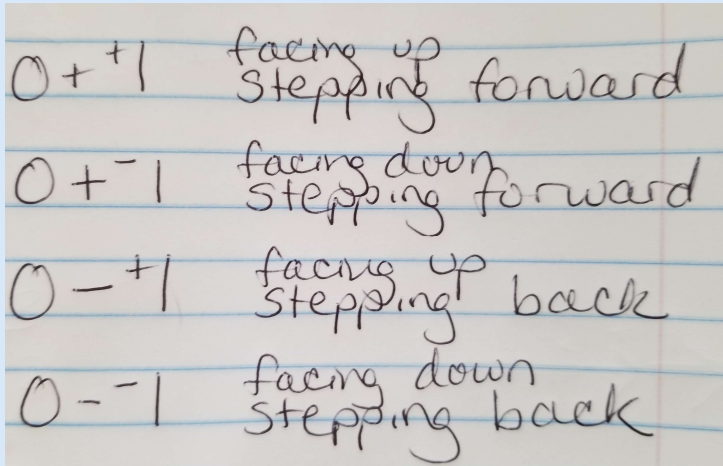 0 + ⁺1 facing up
stepping forward
0 + ⁻1 facing down
stepping forward
0 − ⁺1 facing up
stepping back
0 − ⁻1 facing down
stepping back